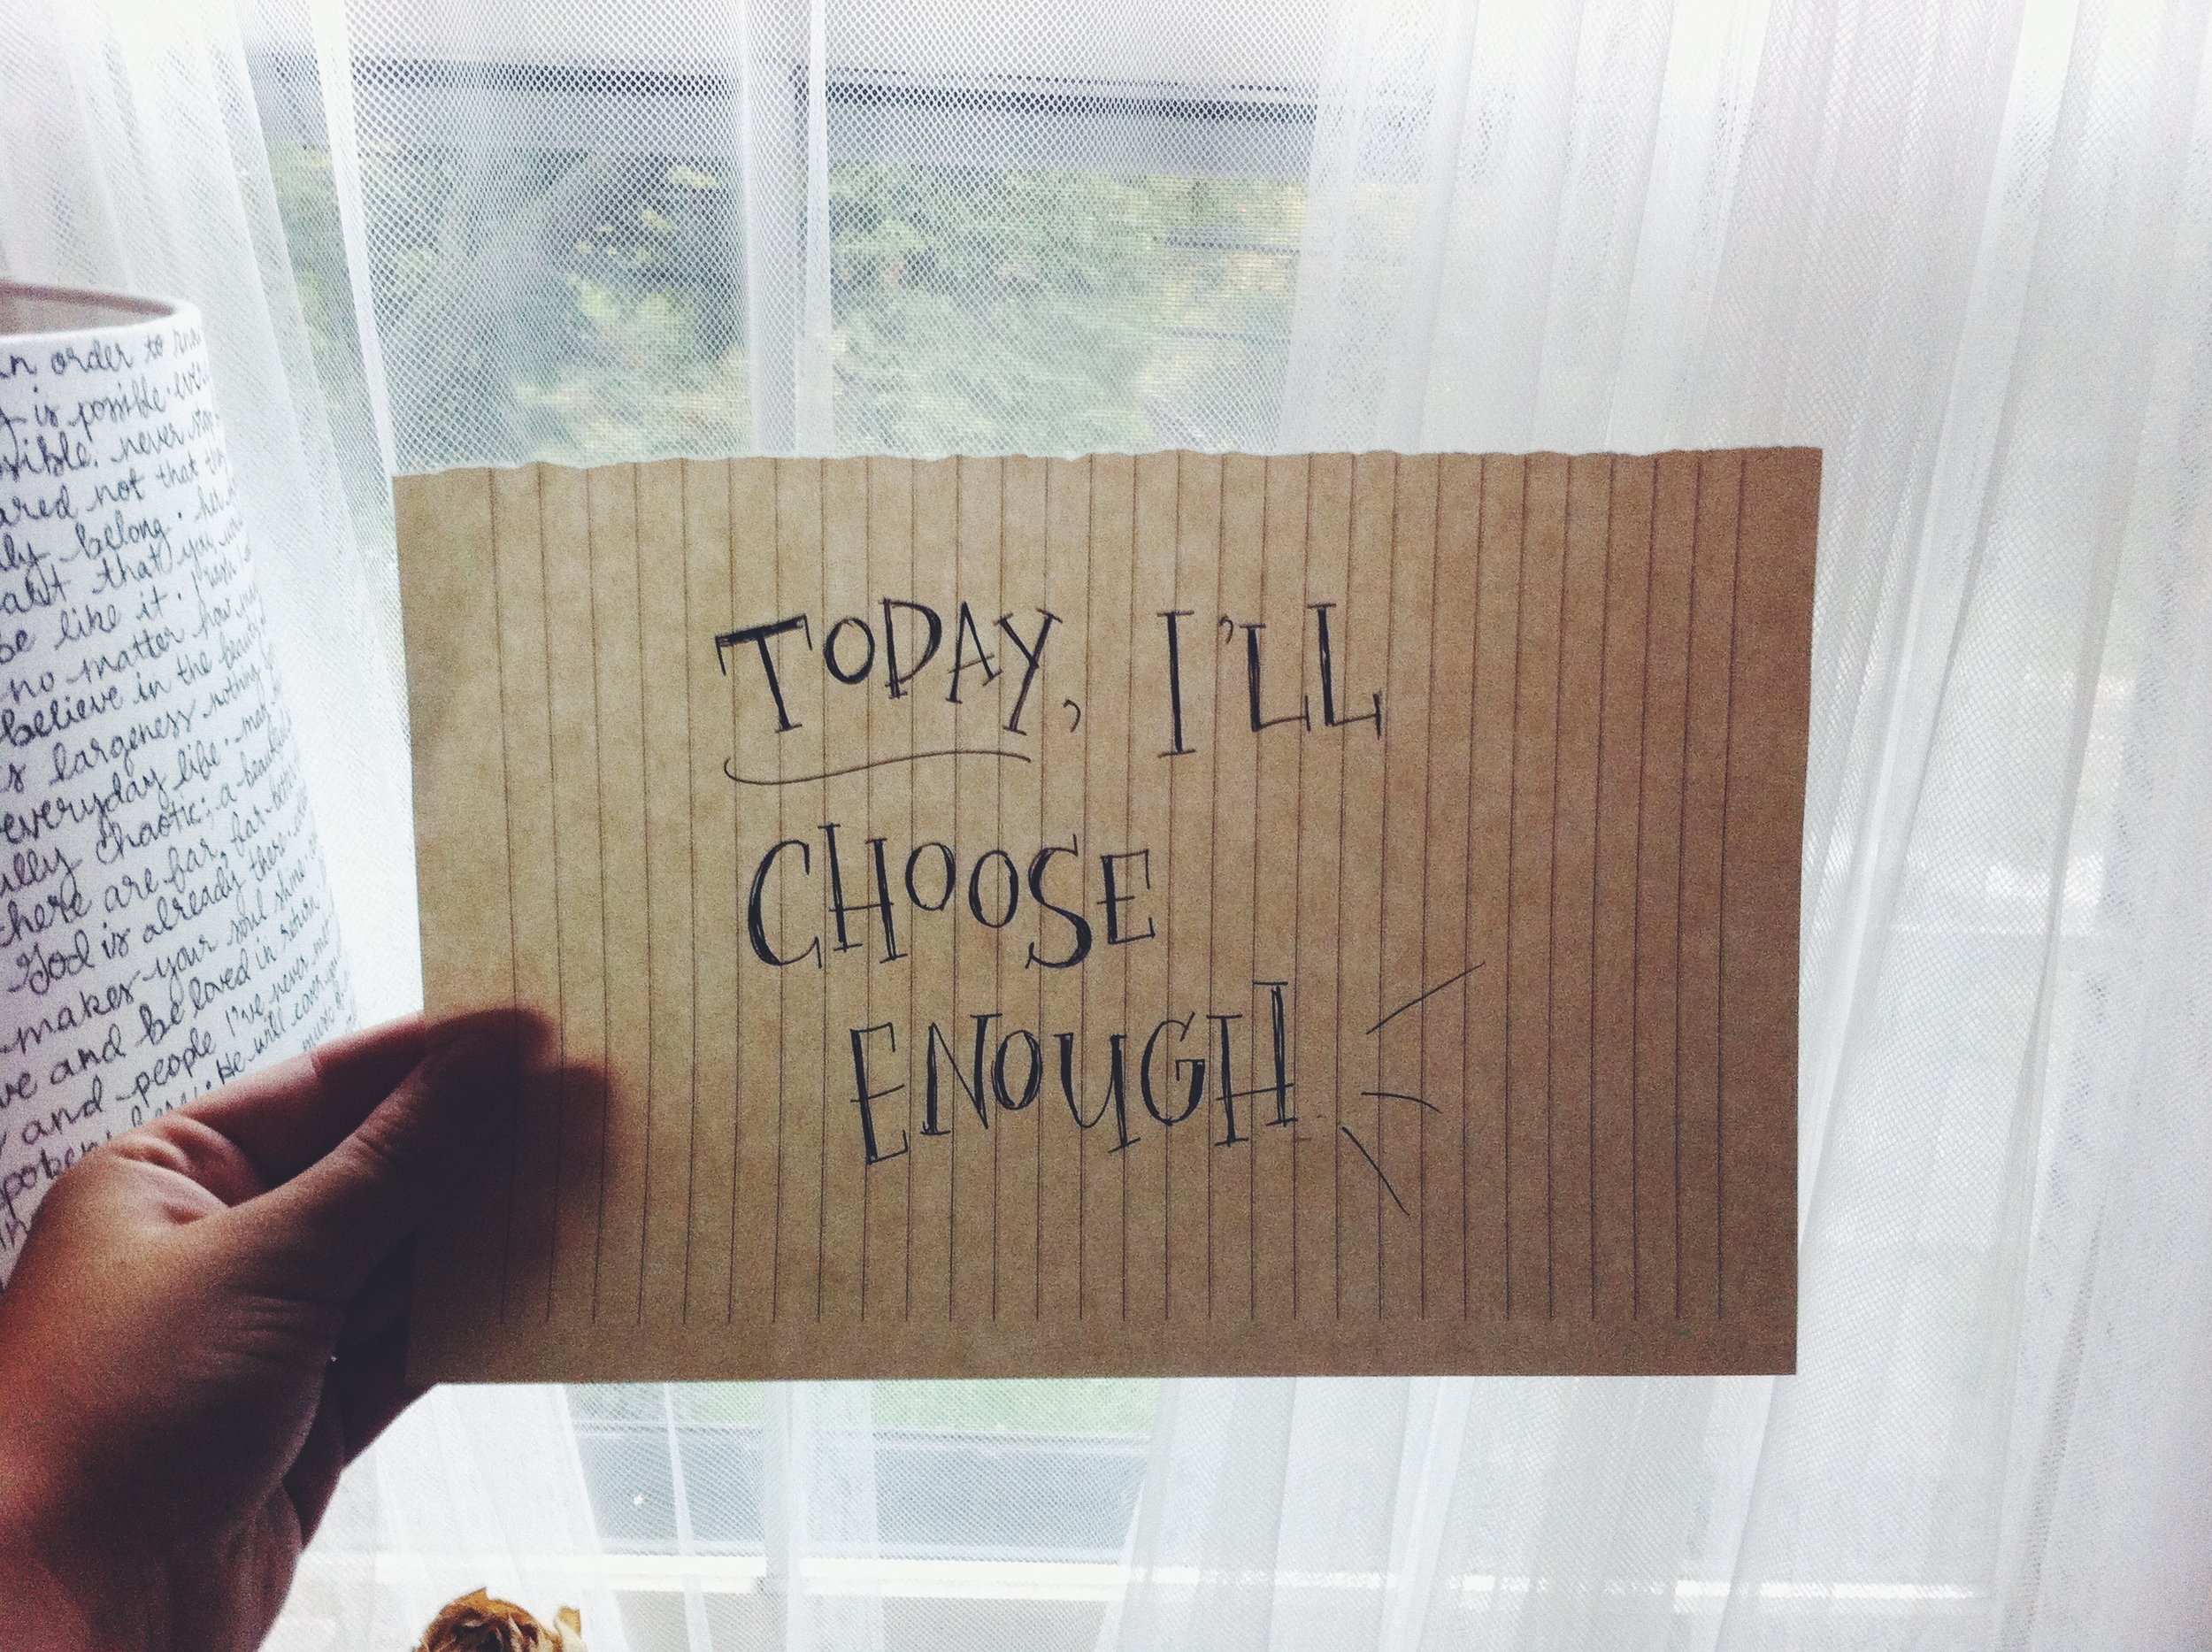 in order to
is possible
never stop
not that
belong.
that you
be like it.
no matter how
believe in the beauty
largeness nothing
everyday life. may
chaotic; a
there are far, far
God is already there.
makes your soul shine.
and be loved in return.
and people I've never met
He will
TODAY, I'LL
CHOOSE
ENOUGH